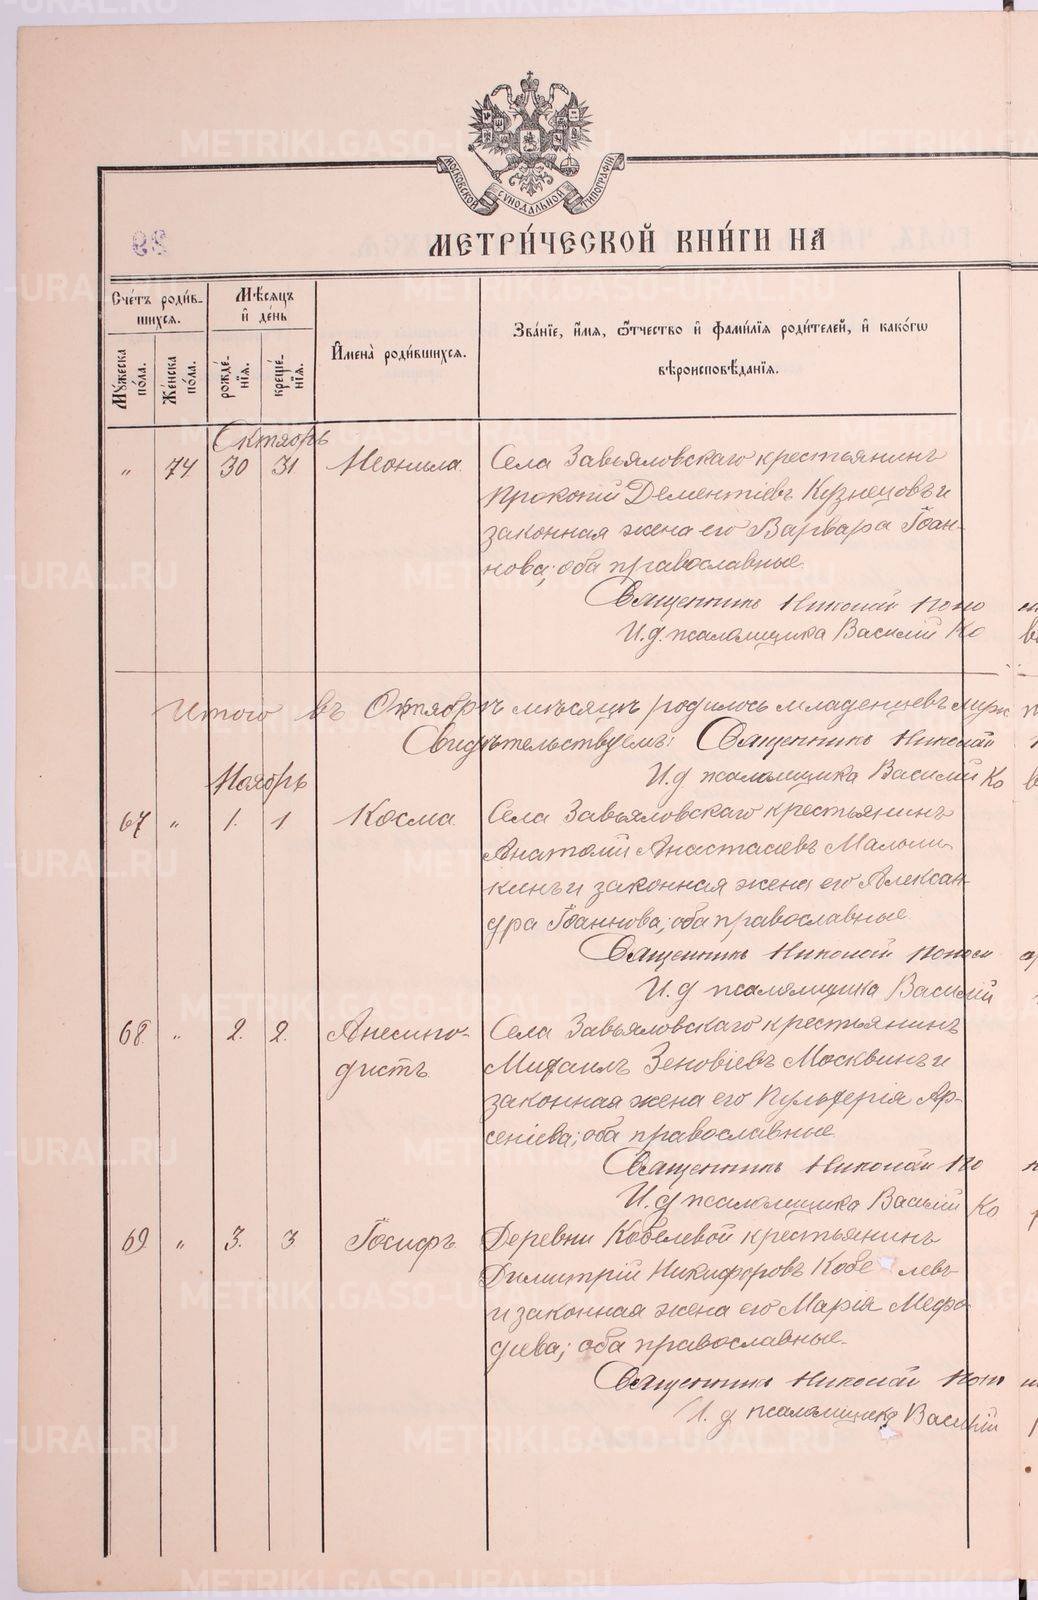 МОСКОВСКОЙ СУНОДАЛЬНОЙ ТИПОГРАФІИ
МЕТРИ́ЧЕСКОЙ КНИ́ГИ НА
Сче́тъ роди́в-
шихся.
Мѣ́сяцъ
и҆ де́нь
И҆мена̀ роди́вшихся.
Зва́ніе, и҆́мя, ѻ҆́тчество и҆ фами́лія роди́телей, и҆ како́гѡ
вѣроисповѣ́данія.
Му́жеска по́ла.
Же́нска по́ла.
рожде́-нія.
креще́-нія.
Октябрь
" 74 30 31 Неонила. Села Завьяловскаго крестьянинъ
Прокопій Дементіевъ Кузнецовъ и
законная жена его Варвара Іоан-
нова; оба православные.
Священникъ Николай Попо
И. д. псаломщика Василій Ко
Итого въ Октябрѣ мѣсяцѣ родилось младенцевъ
Свидѣтельствуемъ: Священникъ Николай
И. д псаломщика Василій Ко
Ноябрь
67 " 1. 1 Косма. Села Завьяловскаго крестьянинъ
Анатолій Анастасіевъ
кинъ и законная жена его Алексан-
дра Іоаннова; оба православные.
Священникъ Николай
И. д псаломщика Василій
68. " 2. 2. Анемпо- Села Завьяловскаго крестьянинъ
дистъ. Михаилъ Зеновіевъ Москвинъ и
законная жена его Пульхерія Ар-
сеніева; оба православные.
Священникъ Николай По
И. д псаломщика Василій Ко
69. " 3. 3 Іосифъ. Деревни Кобелевой крестьянинъ
Димитрій Никифоровъ Кобе левъ
и законная жена его Марія Мефо-
діева; оба православные.
Священникъ Николай Попо
И. д псаломщика Василій
METRIKI.GASO-URAL.RU